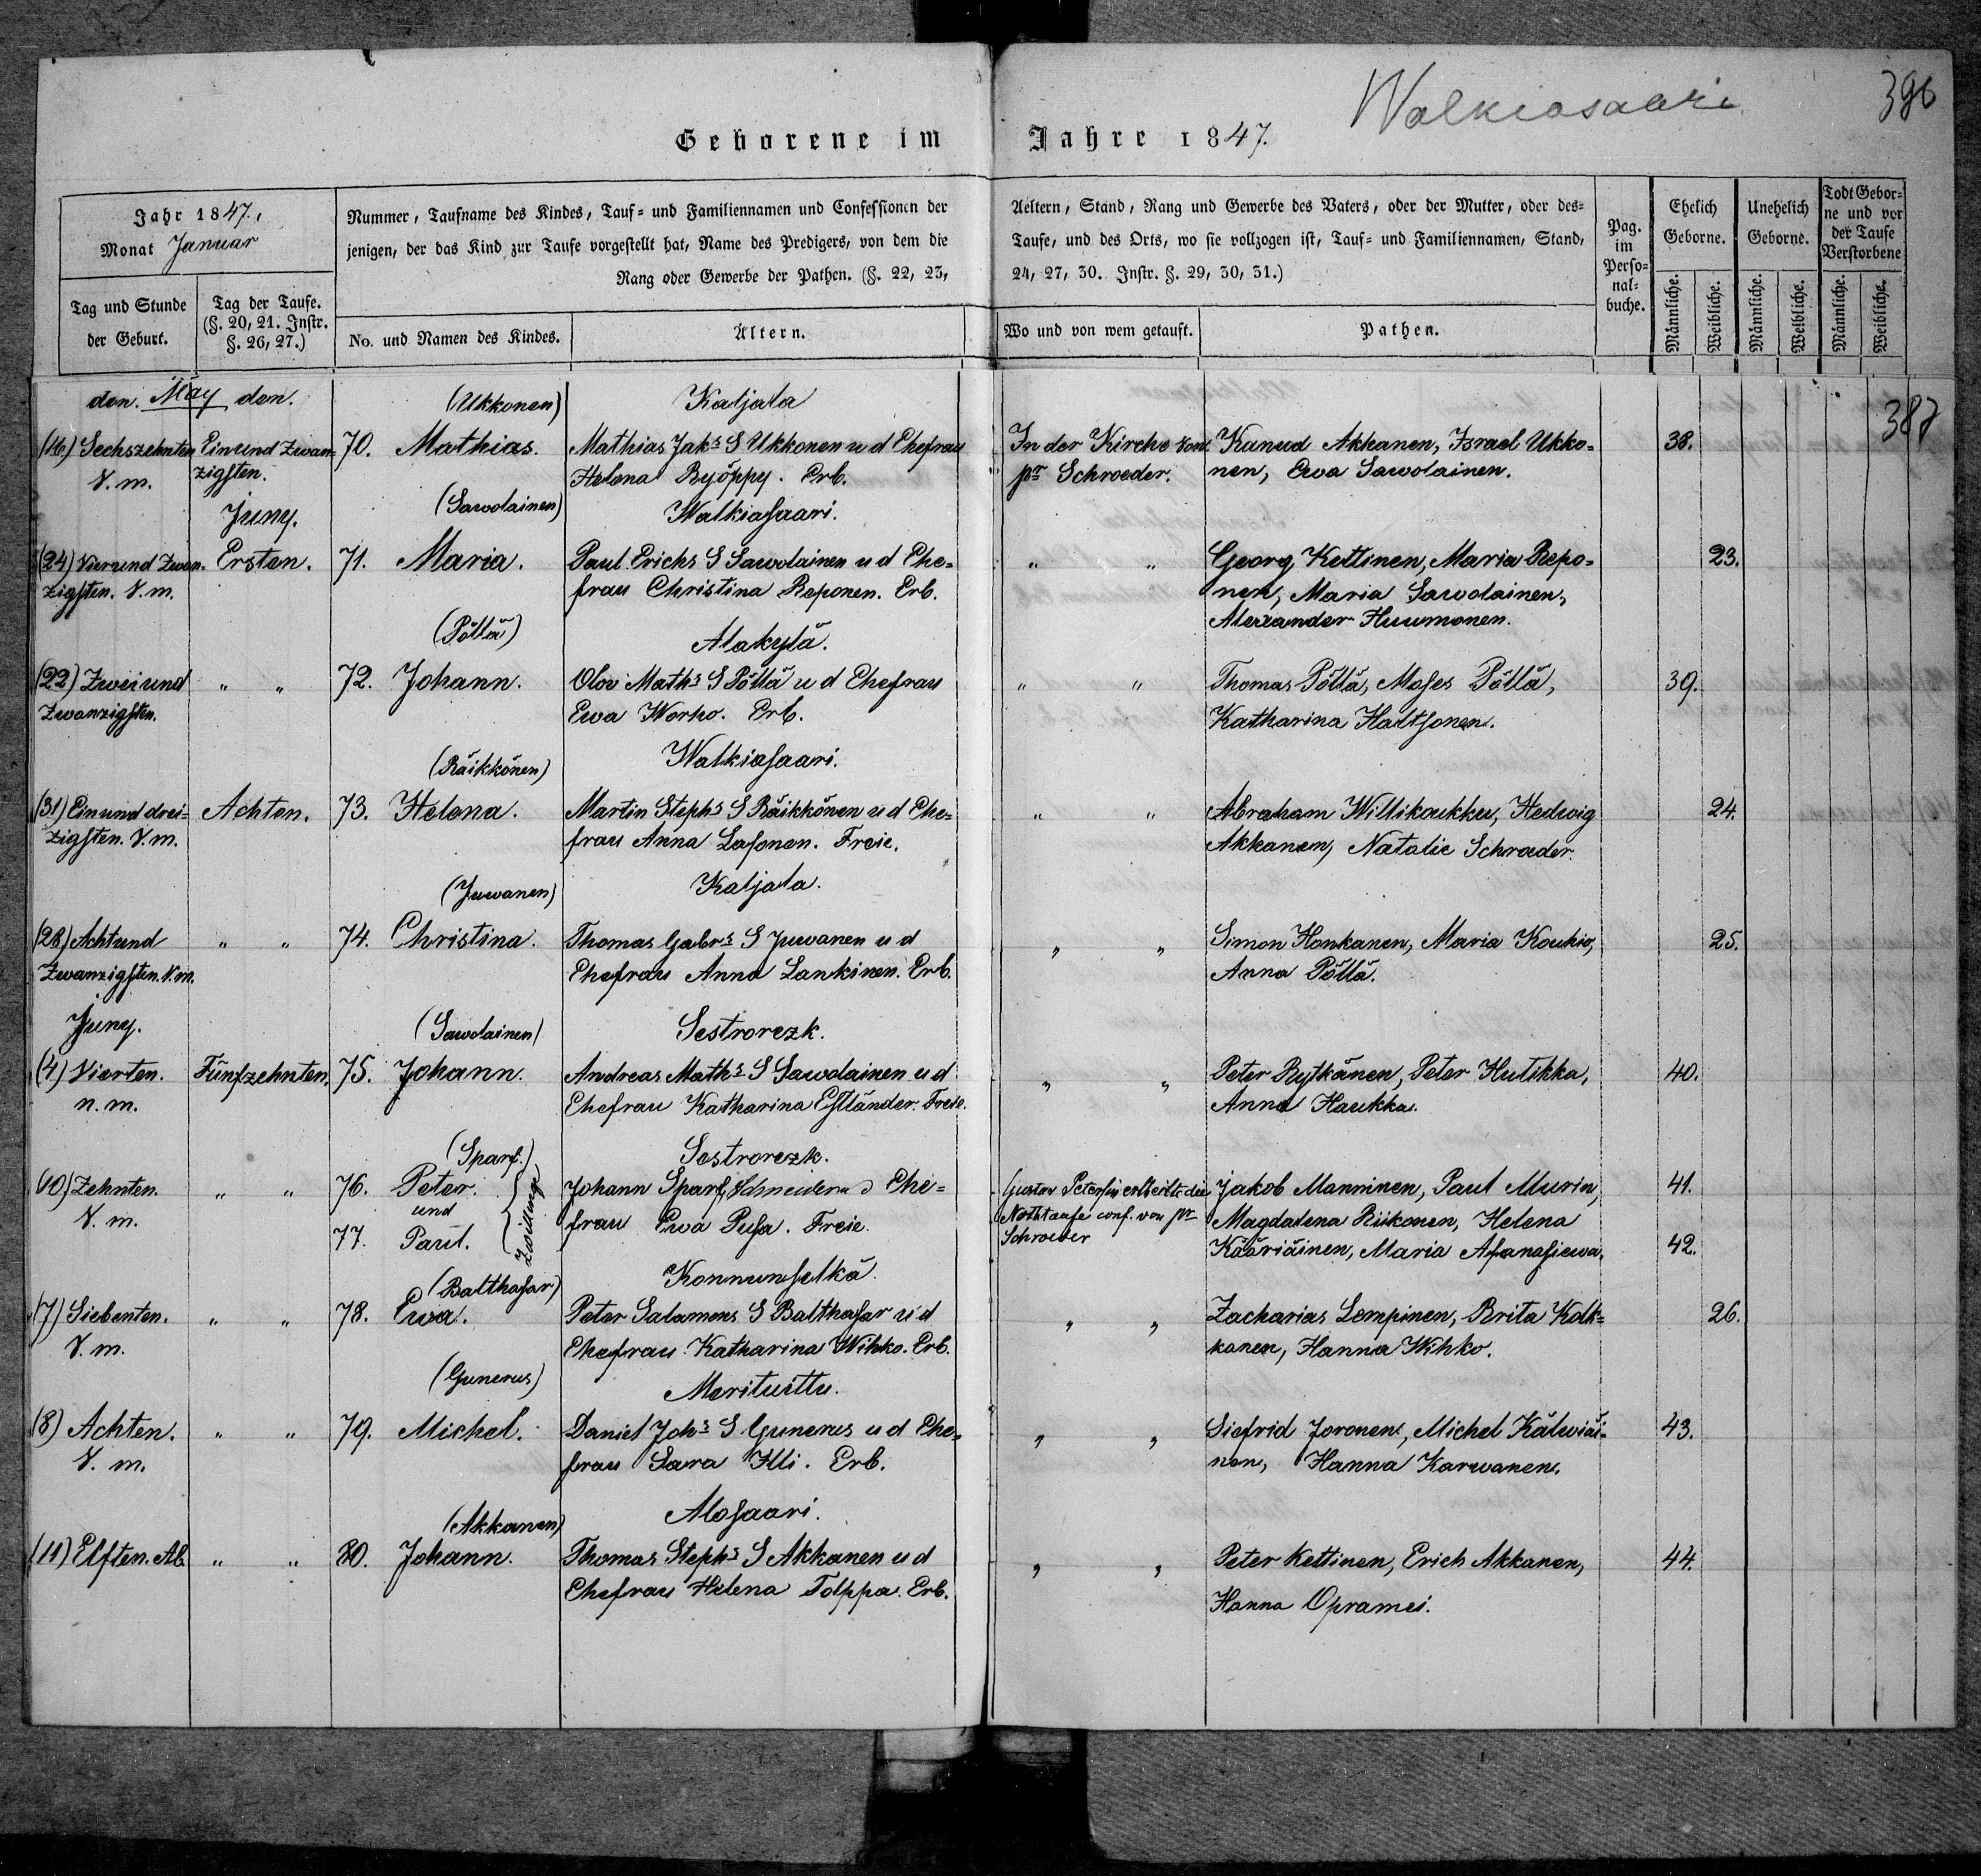 Walkiasaari
396
Geborene im Jahre 1847.
Jahr 1847.,
Monat Januar
Nummer, Taufname des Kindes, Tauf- und Familiennamen und Confessionen der
jenigen, der das Kind zur Taufe vorgestellt hat, Name des Predigers, von dem die
Rang oder Gewerbe der Pathen. (§. 22, 23,
Aeltern, Stand, Rang und Gewerbe des Vaters, oder der Mutter, oder des-
Taufe, und des Orts, wo sie vollzogen ist, Tauf- und Familiennamen, Stand,
24, 27, 30. Instr. §. 29, 30, 31.)
Pag. im Perso=nal=buche.
Ehelich Geborne.
Unehelich Geborne.
Todt Gebor=ne und vor der Taufe Verstorbene
Tag und Stunde der Geburt.
Tag der Taufe. (§. 20, 21. Instr. §. 26, 27.)
No. und Namen des Kindes.
Ältern.
Wo und von wem getauft.
Pathen.
Männliche. Weibliche. Männliche. Weibliche. Männliche. Weibliche.
387
den. May den. (Ukkonen) Kaljala
(16) Sechszehnten Einund Zwan= 70. Mathias. Mathias Jaks S Ukkonen u d Ehefrau In der Kirche Kanud Akkanen, Israel Ukko= 38.
V. m. zigsten. Helena Ryöppy. Erb. pr Schroeder. nen, Ewa Sawolainen.
Juny. (Sawolainen) Walkiasaari.
(24) Vierund Zwan. Ersten. 71. Maria. Paul Erichs S Sawolainen u d Ehe= " " Georg Kettinen, Maria Repo= 23.
zigsten. V. m. frau Christina Reponen. Erb. nen, Maria Sawolainen,
Alexander Huumonen.
(Pöllä) Alakylä.
(22) Zweiund " " 72. Johann. Olov Maths S Pöllä u d Ehefrau " " Thomas Pöllä, Moses Pöllä, 39.
Zwanzigsten. Ewa Worho. Erb. Katharina Haltsonen.
(Räikkönen) Walkiasaari.
(31) Einund drei= Achten. 73. Helena. Martin Stephs S Räikkönen u d Ehe= " " Abraham Willikoukku, Hedwig 24.
zigsten. V. m. frau Anna Lasonen. Freie. Akkanen, Natalie Schroeder.
(Juwanen) Kaljala.
(28) Achtund " " 74. Christina. Thomas Gabrs S Juwanen u d " " Simon Honkanen, Maria Koukio, 25.
Zwanzigsten. V. m. Ehefrau Anna Lankinen. Erb. Anna Pöllä.
Juny. (Sawolainen) Sestrorezk.
(4) Vierten. Fünfzehnten. 75. Johann. Andreas Maths S Sawolainen u d " " Peter Rytkänen, Peter Hutikka, 40.
n. m. Ehefrau Katharina Estländer. Freie. Anna Haukka.
(Sparf.) Sestrorezk.
(10) Zehnten. " " 76. Peter. Johann Sparf, Schneider u d Ehe= Gustav Petersin ertheilte die Jakob Manninen, Paul Murin, 41.
V. m. und Zwillinge frau Ewa Pusa. Freie. Nothtaufe conf. von pr Magdalena Riikonen, Helena
77. Paul. Schroeder Kääriäinen, Maria Afanasiewa. 42.
(Balthasar) Konnunselkä.
(7) Siebenten. " " 78. Ewa. Peter Salamons S Balthasar u d " " Zacharias Lempinen, Brita Kolk= 26.
V. m. Ehefrau Katharina Wihko. Erb. kanen, Hanna Wihko.
(Gunerus) Merituittu.
(8) Achten. " " 79. Michel. Daniel Johs S Gunerus u d Ehe= " " Siefrid Joronen, Michel Kälwiäi= 43.
V. m. frau Sara Illi. Erb. nen, Hanna Karwanen.
(Akkanen) Alosaari.
(11) Elften. Ab. " " 80. Johann. Thomas Stephs S Akkanen u d " " Peter Kettinen, Erich Akkanen, 44.
Ehefrau Helena Tolppa. Erb. Hanna Opramei.